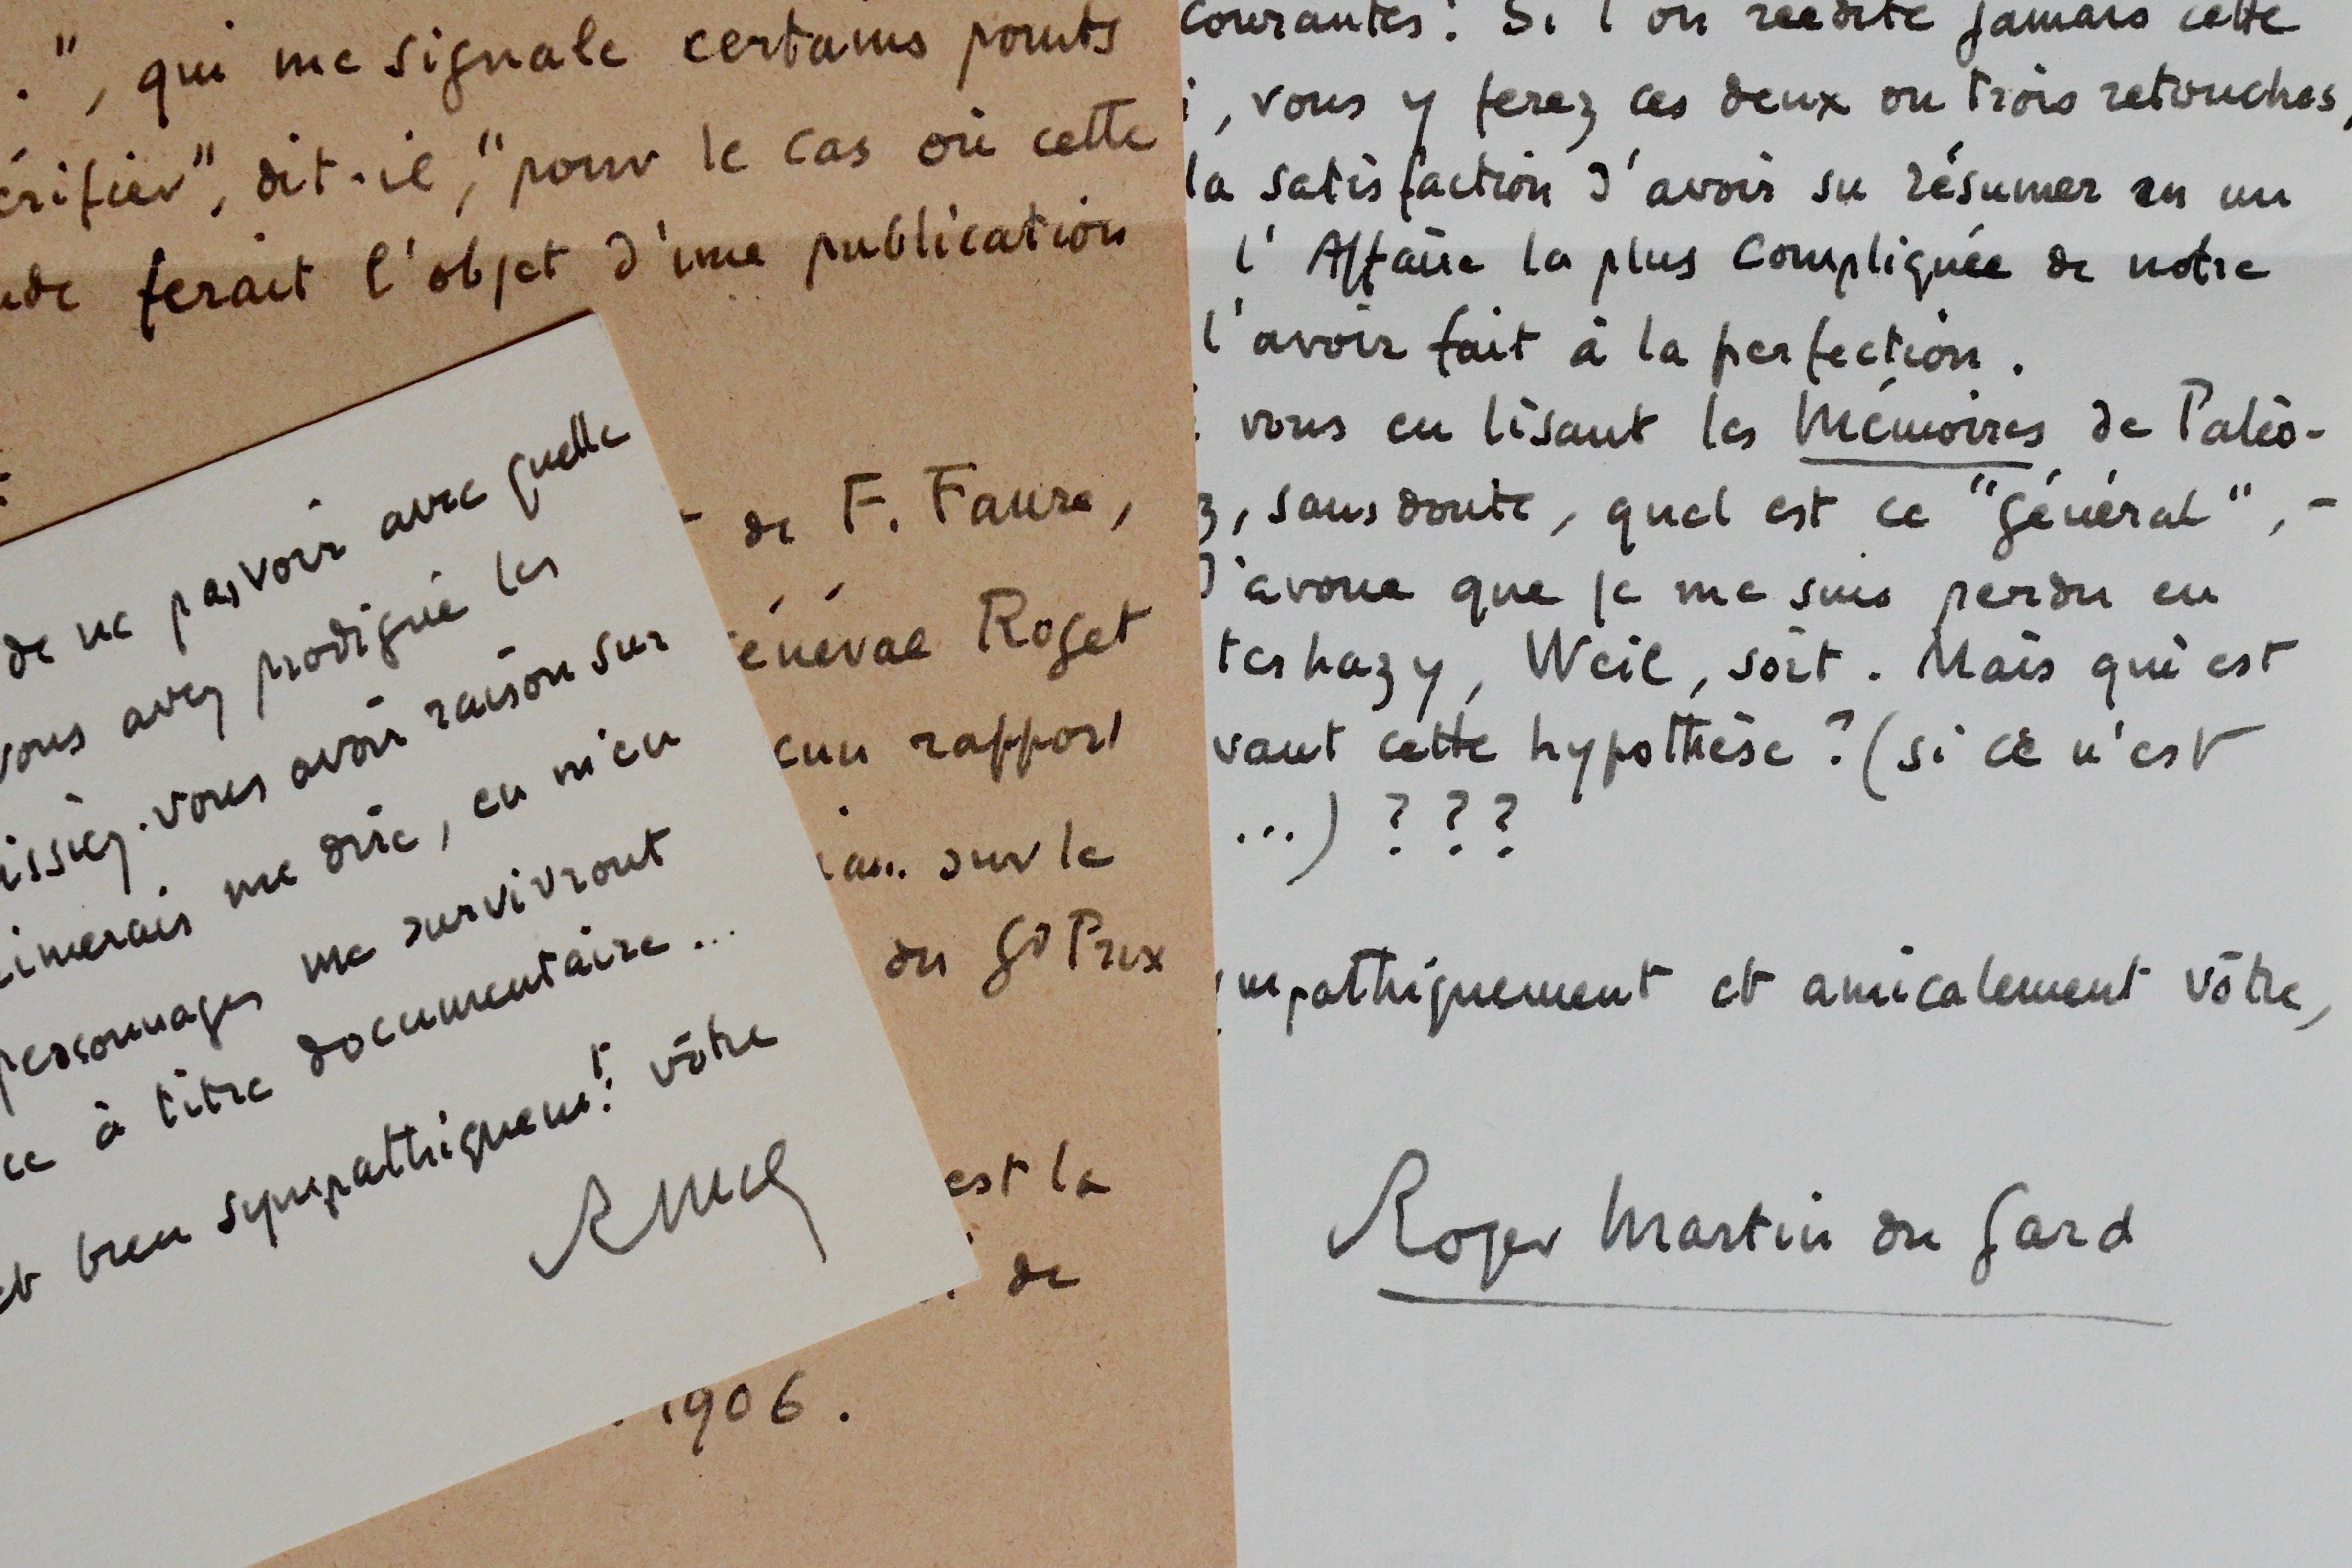 .", qui me signale certains points
érifier", dit-il, "pour le cas où cette
ude ferait l'objet d'une publication
de F. Faure,
énéral Roget
cun rapport
sur le
du Gd Prix
est la
de
1906.
de ne pas voir avec quelle
vous avez prodigué les
issiez-vous avoir raison sur
imerais me dire, en m'en
personnages me survivront
ce à titre documentaire...
et bien sympathiquemt vôtre
RMG
courantes. Si l'on réédite jamais cette
i, vous y ferez ces deux ou trois retouches,
la satisfaction d'avoir su résumer en un
l'Affaire la plus compliquée de notre
l'avoir fait à la perfection.
vous en lisant les Mémoires de Paléo-
z, sans doute, quel est ce "général", -
J'avoue que je me suis perdu en
terhazy, Weil, soit. Mais qui est
vant cette hypothèse ? (si ce n'est
...) ? ? ?
ympathiquement et amicalement vôtre,
Roger Martin du Gard